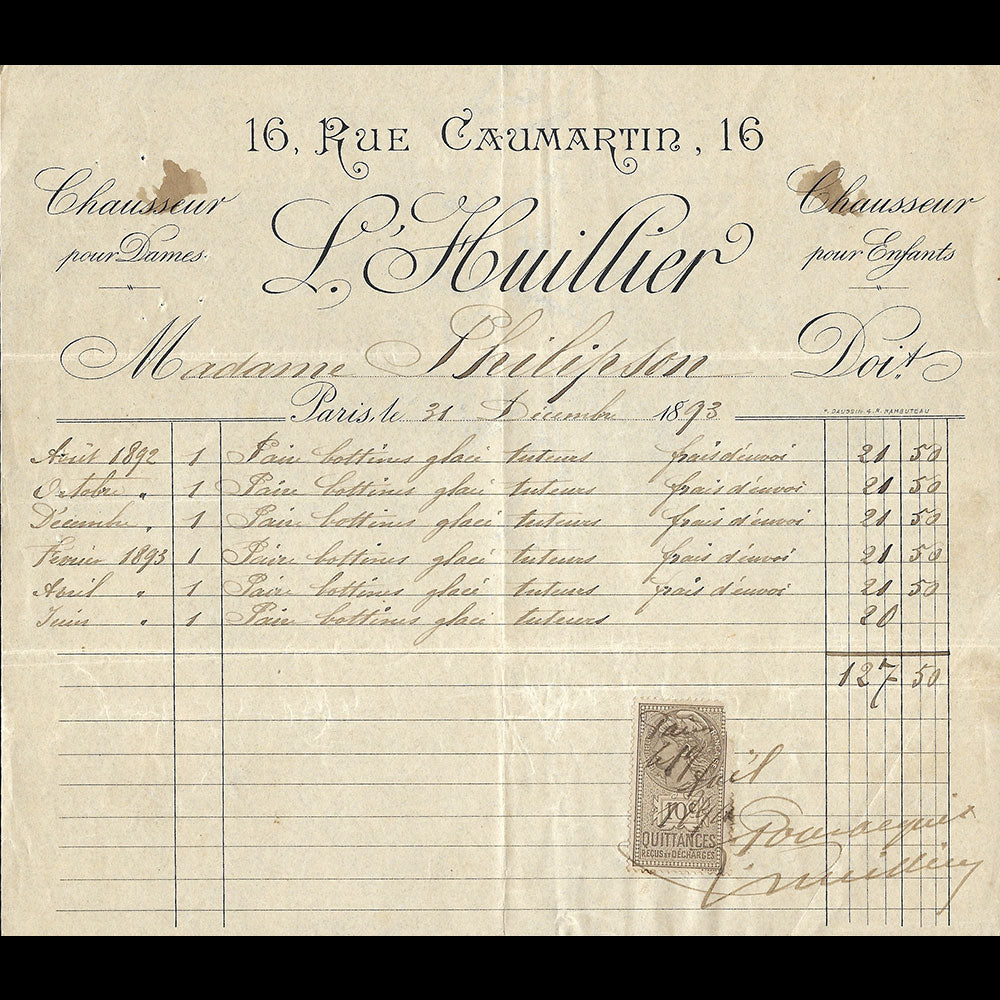 16, Rue Caumartin, 16
Chausseur pour Dames.
L. L'Huillier
Chausseur pour Enfants
Madame Philipson Doit
Paris, le 31 Décembre 1893
Août 1892 1 Paire bottines glacé tuteurs frais d'envoi 21 50
Octobre " 1 Paire bottines glacé tuteurs frais d'envoi 21 50
Décembre " 1 Paire bottines glacé tuteurs frais d'envoi 21 50
Février 1893 1 Paire bottines glacé tuteurs frais d'envoi 21 50
Avril " 1 Paire bottines glacé tuteurs frais d'envoi 21 50
Juin " 1 Paire bottines glacé tuteurs 20
127 50
10c
QUITTANCES
REÇUS ET DÉCHARGES
Pour acquit
L'Huillier